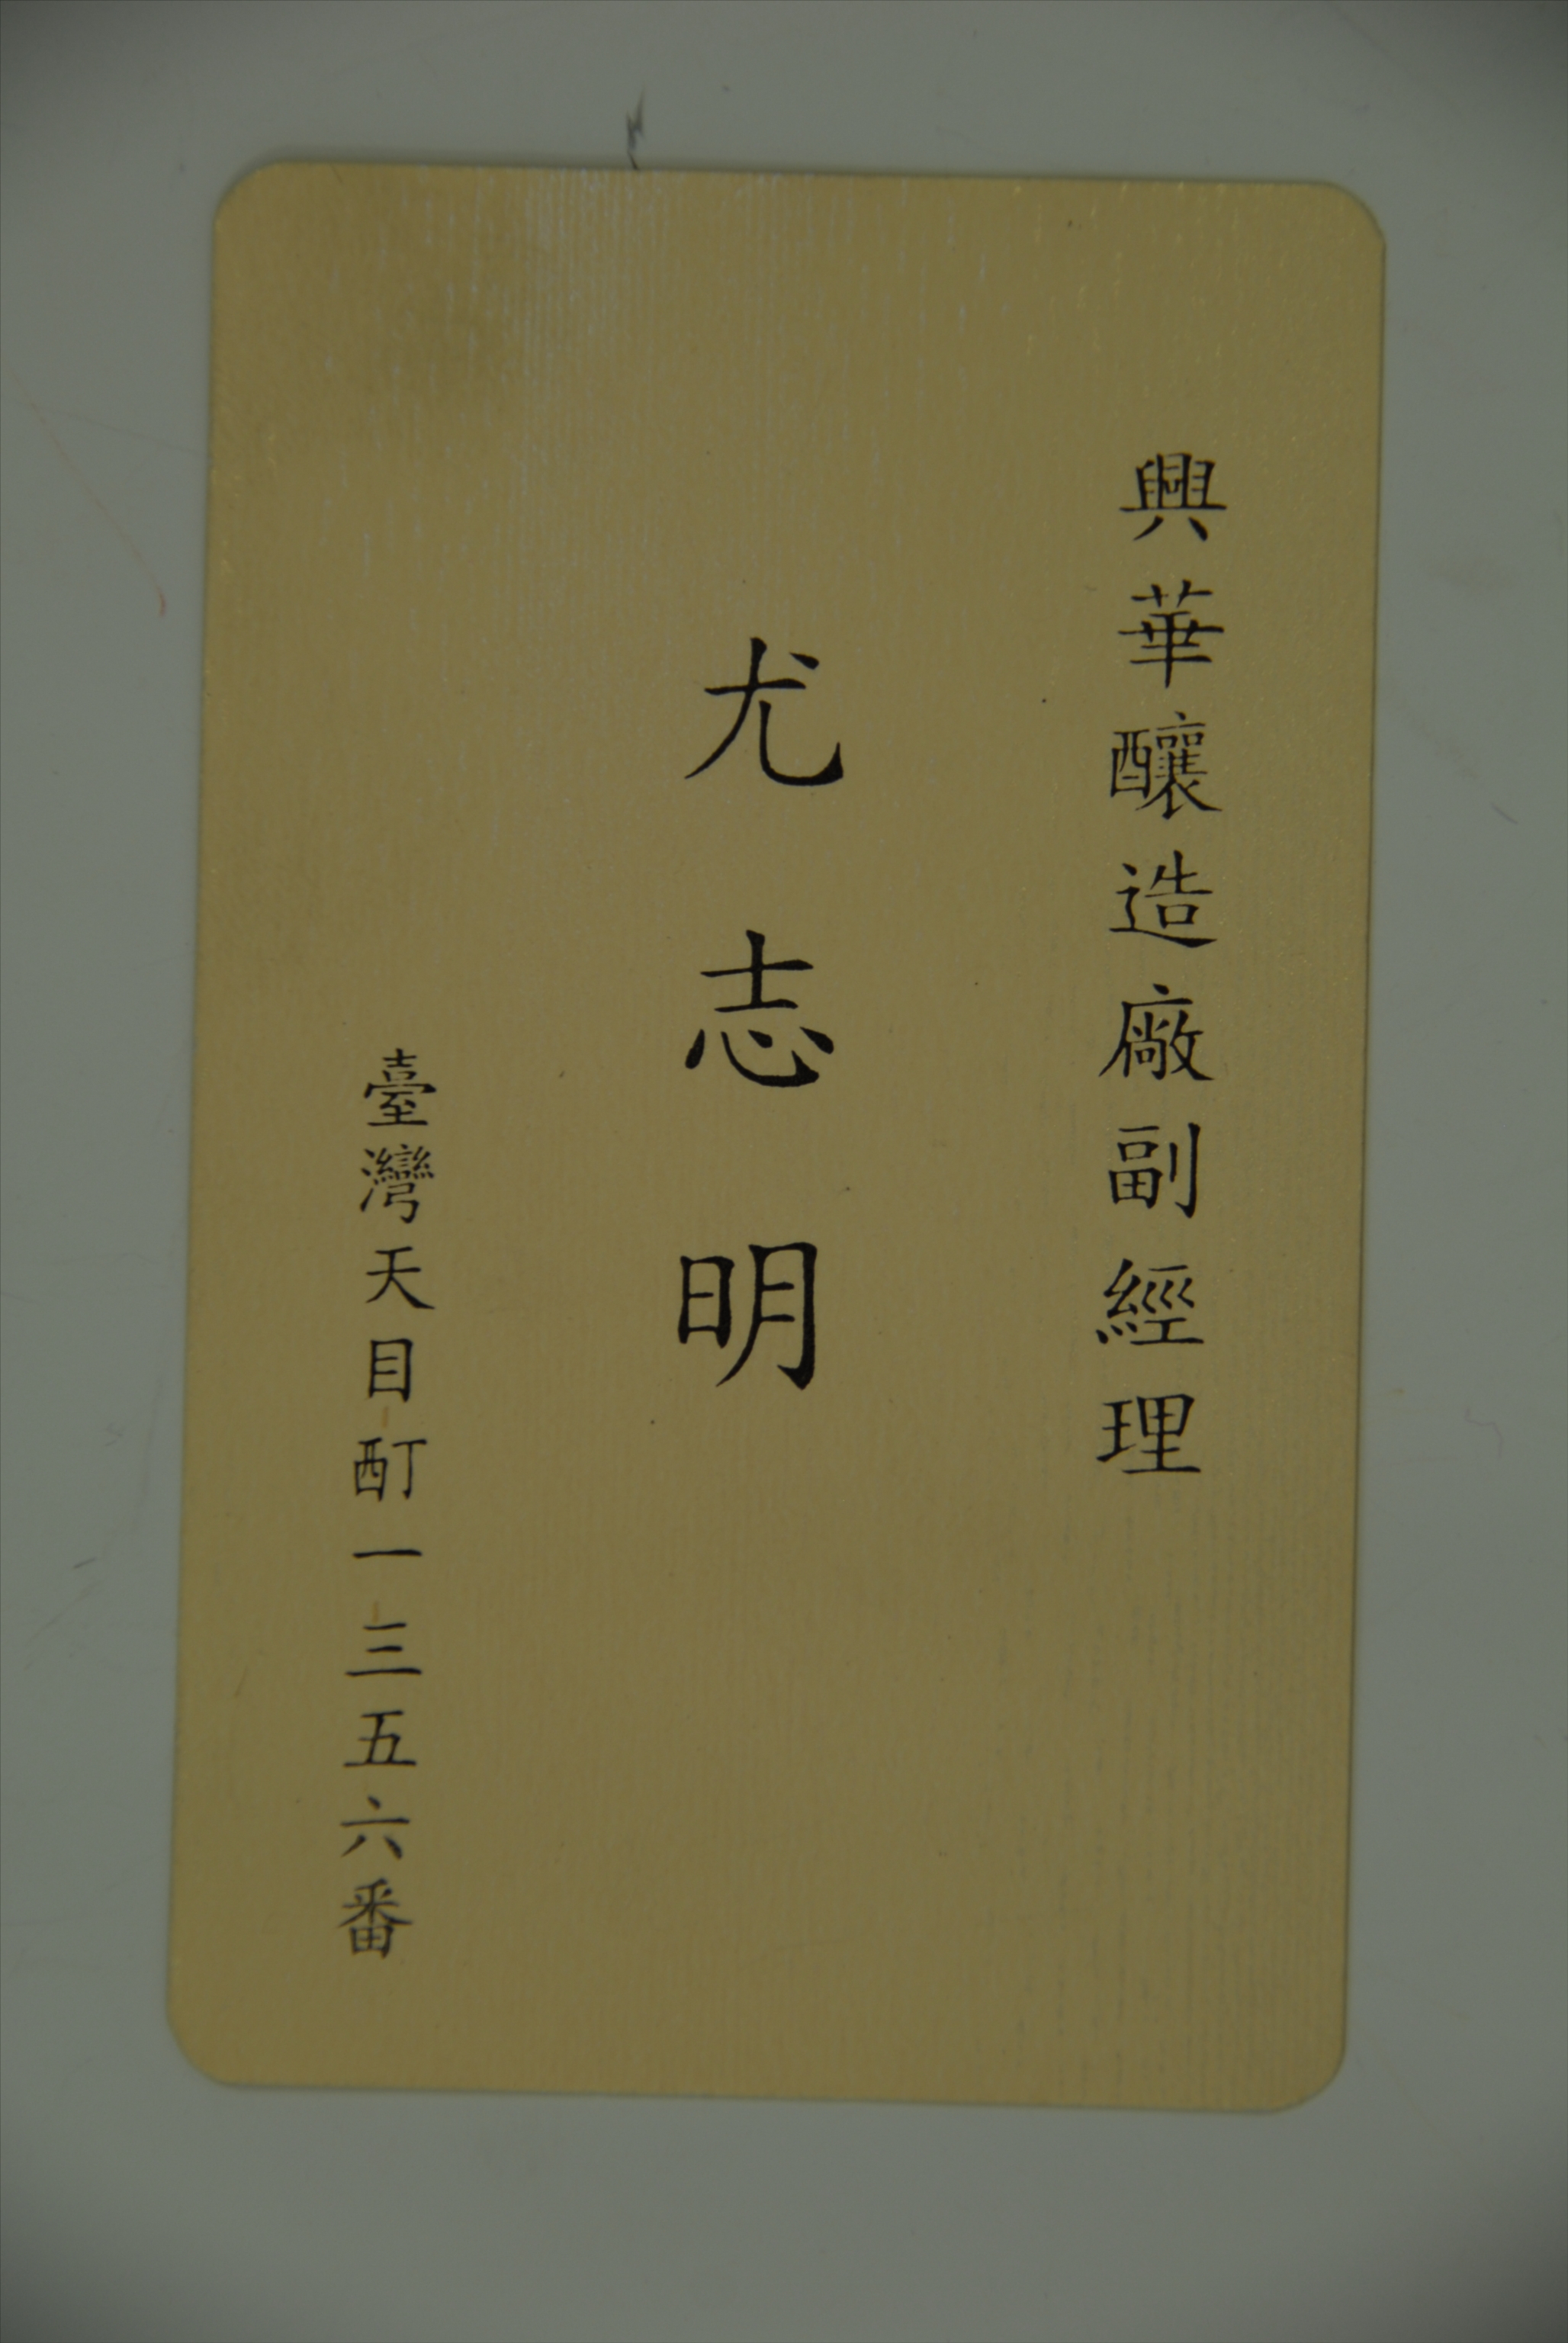 興華釀造廠副經理
尤志明
臺灣天目酊一三五六番